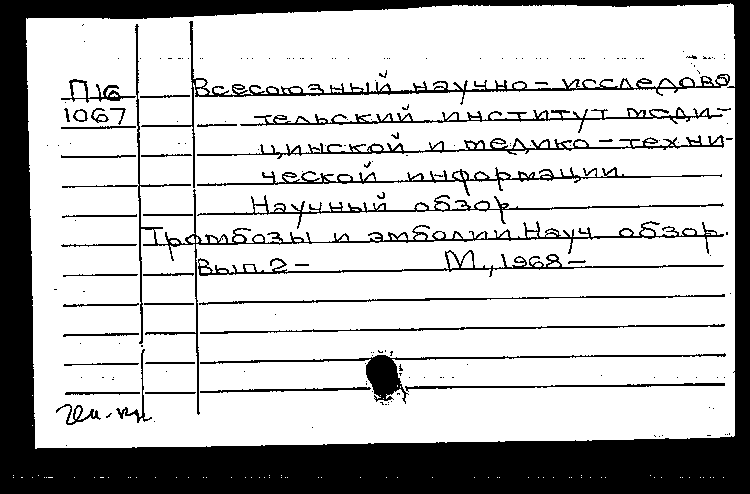 П16
1067
Всесоюзный научно-исследова
тельский институт меди-
цинской и медико-техни-
ческой информации.
Научный обзор.
Тромбозы и эмболии. Науч. обзор.
Вып. 2- М., 1968-